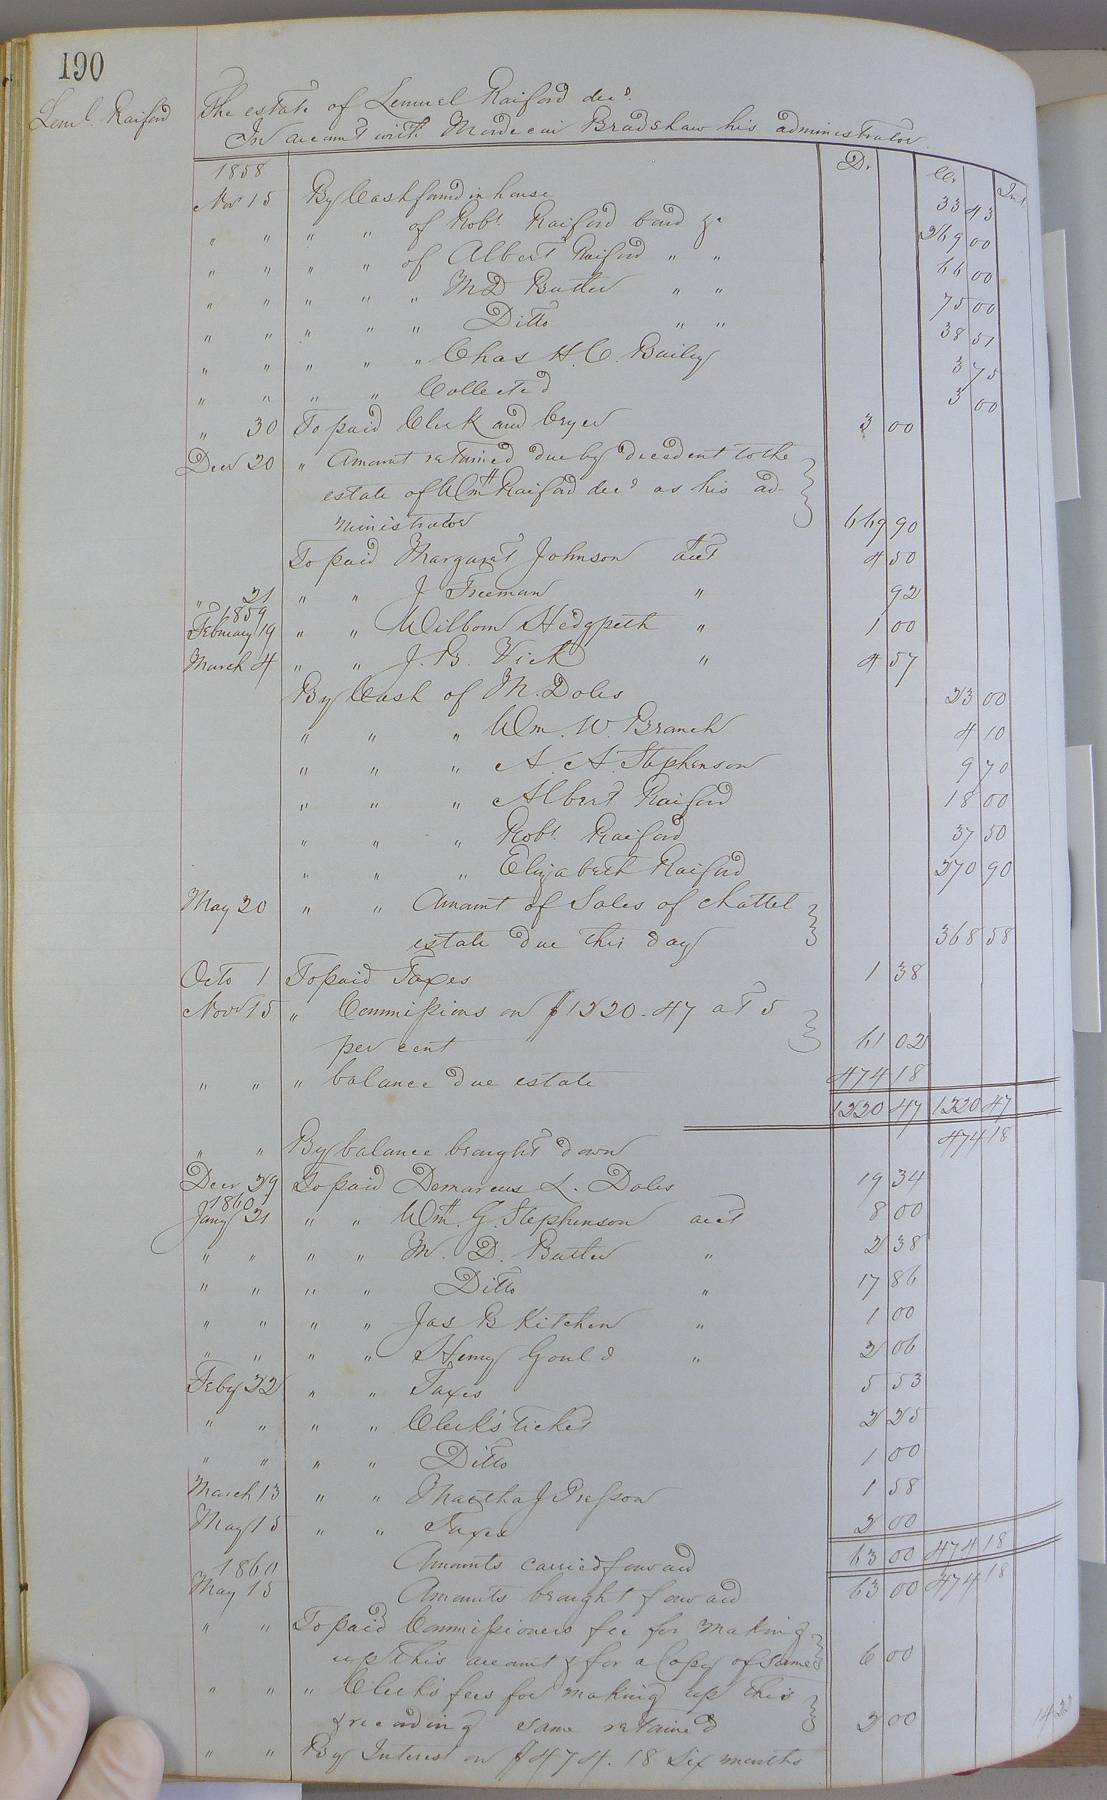 190
Leml. Raiford
The estate of Lemuel Raiford decd.
In account with Mordecai Bradshaw his administrator.
1858 Dr. Cr. Int
Nov 15 By Cash found in house 33 43
" " " " of Robt. Raiford bond &c 269 00
" " " " of Albert Raiford " " 66 00
" " " " " M D Butler " " 75 00
" " " " " Ditto " " 38 51
" " " " " Chas H. C. Bailey 3 75
" " " " Collected 3 00
" 30 To paid Clerk and Cryer 3 00
Decr 20 " Amount returned due by decedent to the
estate of Wm Raiford decd as his ad-
ministrator 669 90
To paid Margaret Johnson acct 4 50
" 21 " " J Freeman " 92
1859
February 19 " " Wilborn Hedgpeth " 1 00
March 4 " " J. B. Vick " 4 57
By Cash of M. Doles 23 00
" " " Wm. W. Branch 4 10
" " " A. A. Stephenson 9 70
" " " Albert Raiford 18 00
" " " Robt. Raiford 37 50
" " " Elizabeth Raiford 270 90
May 20 " " Amount of Sales of chattel
estate due this day 368 58
Octo 1 To paid Taxes 1 38
Novr 15 " Commissions on $1220.47 at 5
per cent 61 02
" " " balance due estate 474 18
1220 47 1220 47
" " By balance brought down 474 18
Decr 29 To paid Demarcus L. Doles 19 34
1860
Jany 21 " " Wm. G. Stephenson acct 8 00
" " " " M. D. Butler " 2 38
" " " " Ditto " 17 86
" " " " Jas B Kitchen " 1 00
" " " " Henry Gould " 2 06
Feby 22 " " Taxes 5 53
" " " " Clerk's ticket 2 25
" " " " Ditto 1 00
March 13 " " Martha J Presson 1 58
May 15 " " Taxes 2 00
Amounts carried forward 63 00 474 18
1860
May 15 Amounts brought forward 63 00 474 18
" " To paid Commissioners fee for making
up this account & for a Copy of same 6 00
" " " Clerk's fees for making up this
& recording same retained 2 00
" " By Interest on $474.18 Six months 14 22